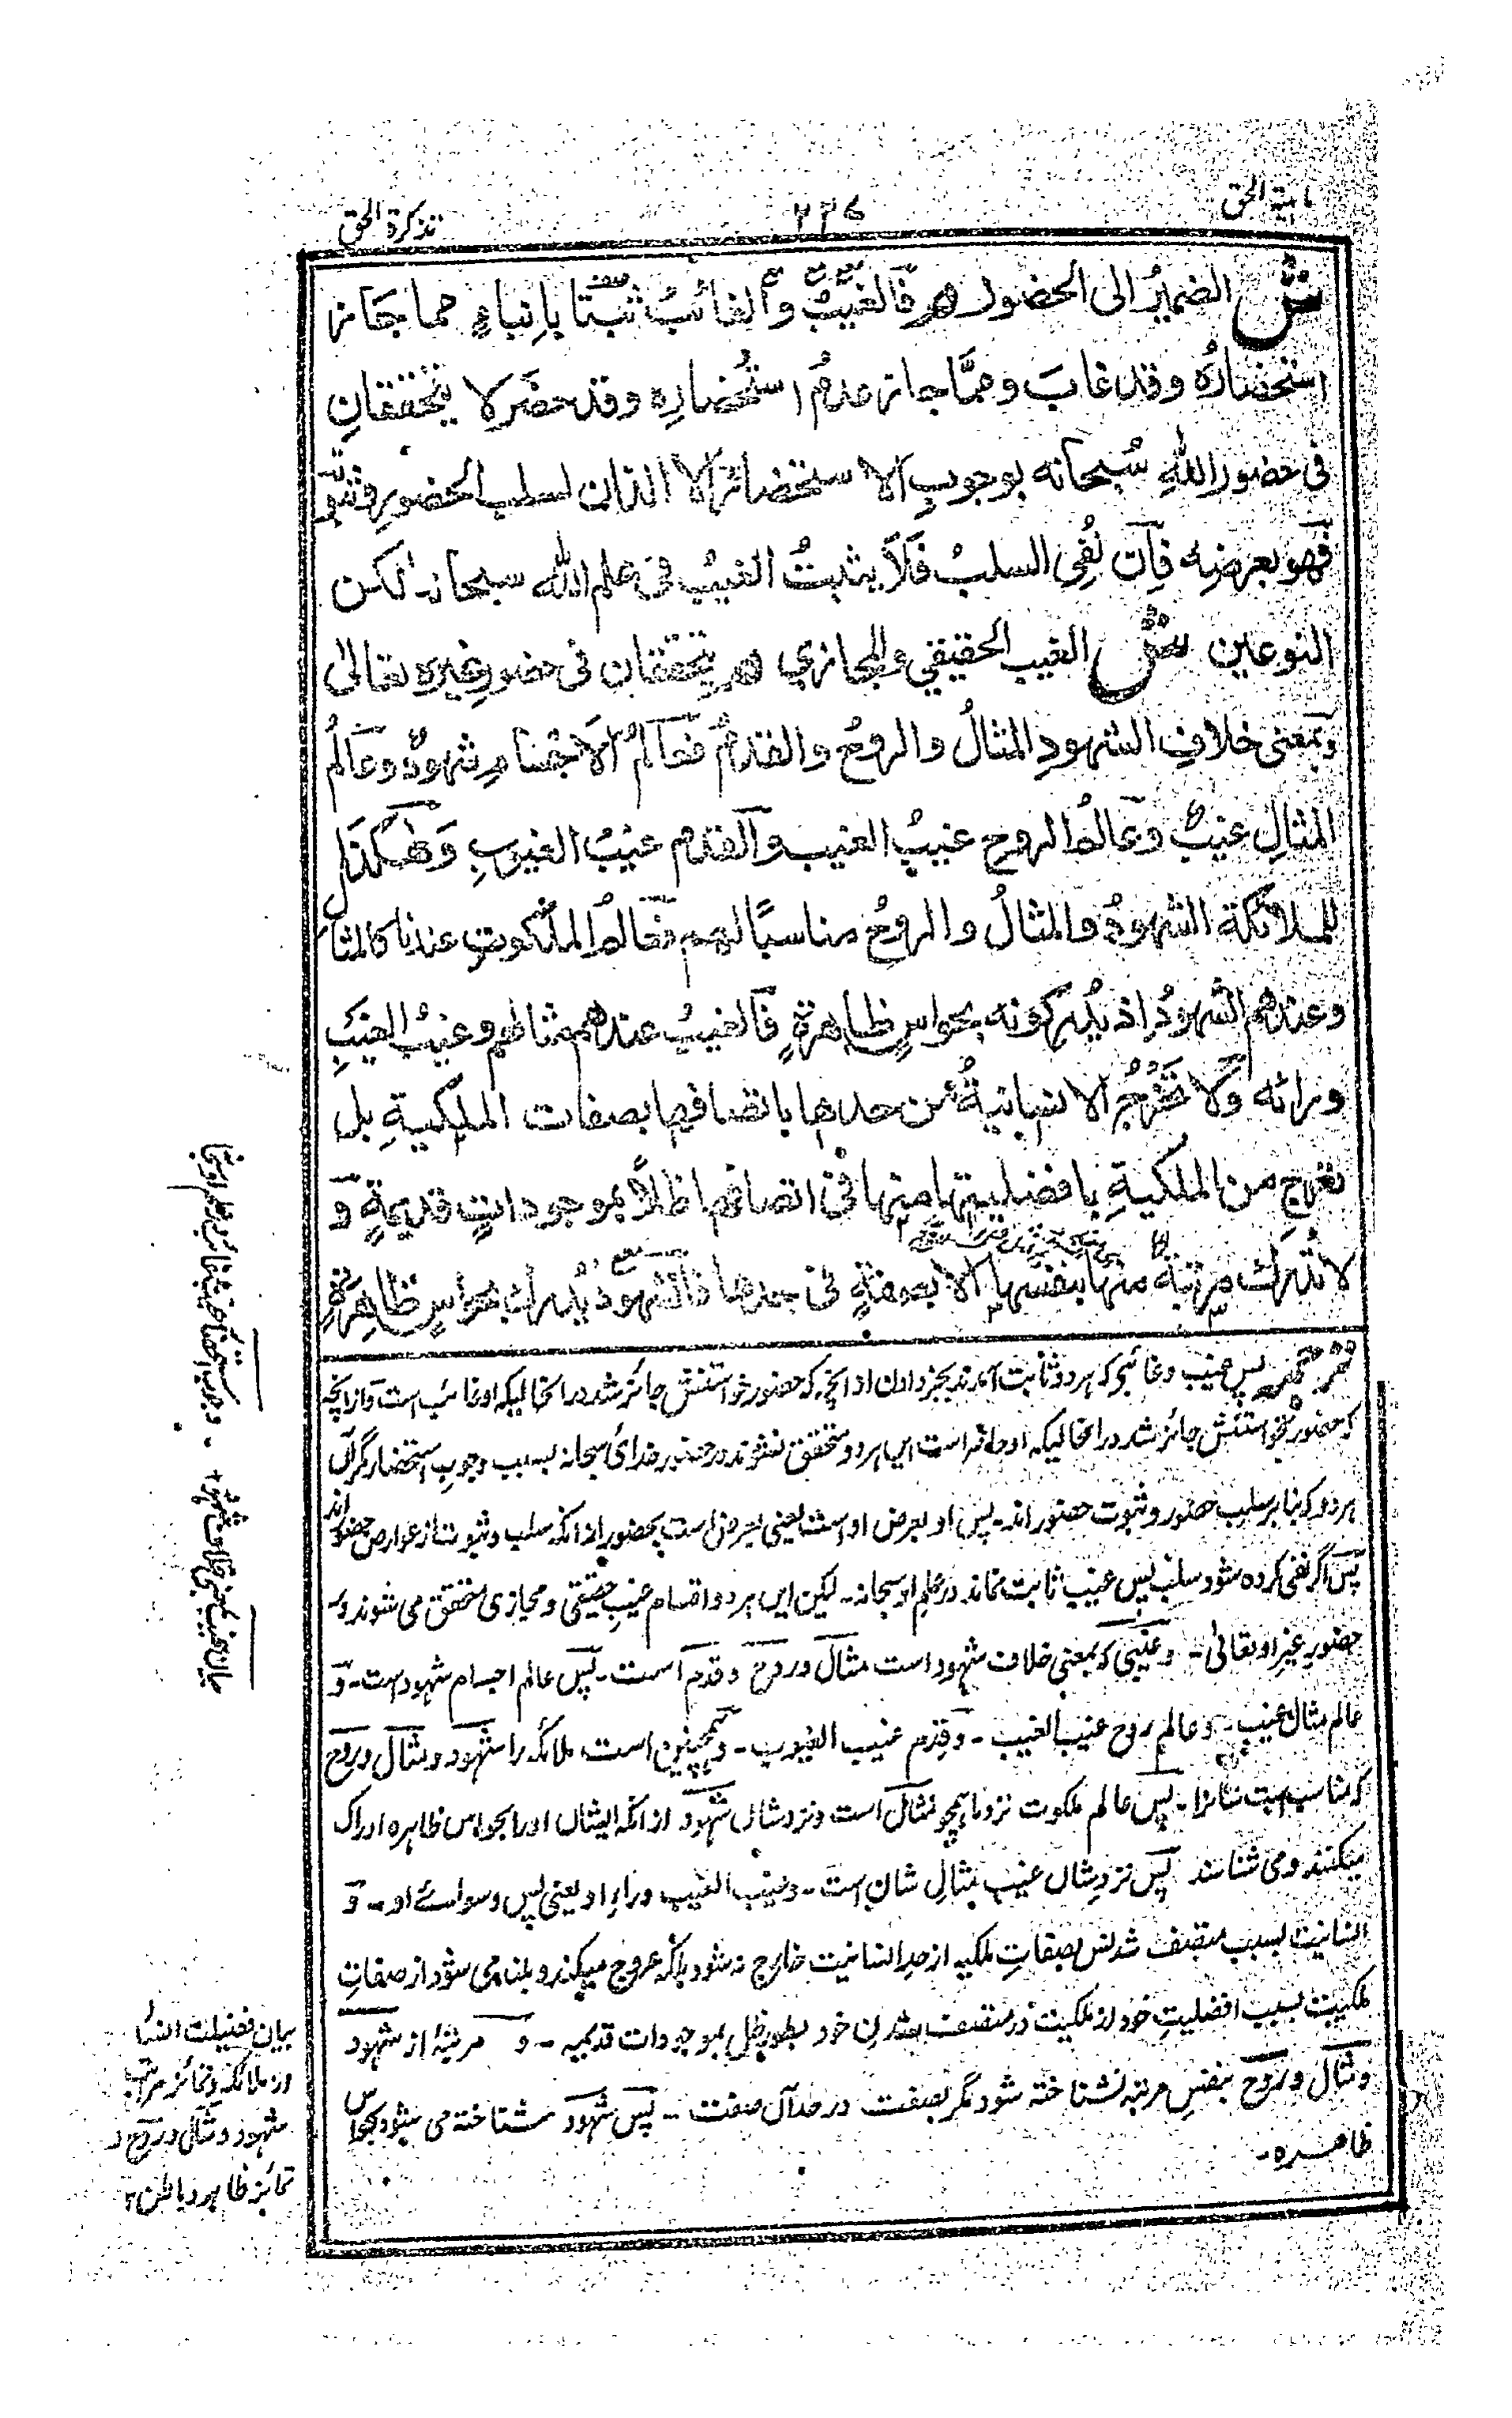 تذکرة الحق
۲۲۷
ماهیة الحق
ش الضمیرُ الی الحضور هم فَالغَیبُ وَالغائبُ ثبتا بِاِنباءٍ مما جَازَ
استحضارُہ وقد غابَ وممَّا جاز عدمُ استحضارِہ وقد حضَر لا یتحققانِ
فی حضورِ اللهِ سُبحانه بوجوبِ الاستحضارِ الا الذان لسلب الحضورِ وثبوته
فَهو بعرضِه فَاِن نُفِی السلبُ فَلا یثبتُ الغیبُ فی علم الله سبحانه لکن
النوعین ش الغیب الحقیقی والمجازی هم یتحققان فی حضورِ غیرہ تعالیٰ
وبمعنی خلافِ الشهودِ المثالُ والروحُ والقدمُ فعَالمُ الاَجسَامِ شهودٌ وعَالَمُ
المثالِ غیبٌ وعَالمُ الروحِ غیبُ الغیب وَالقدم غیبُ الغیوبِ وَهٰکذَا
للملائکة الشهودُ والمثالُ والروحُ مناسبًا لهم فعَالمُ الملکوتِ عندنا کالمثال
وعندهم الشهودُ اذ یُدرکونه بحواسٍ ظاهرةٍ فَالغیبُ عندهم مثالهم وغیبُ الغیبِ
ورائه وَلا تخرُجُ الانسانیةُ من حدها باتصافها بصفات الملکیةِ بل
تعرج من الملکیةِ بافضلیتها منها فی اتصافها ظلاً بموجوداتٍ قدیمةٍ و
لا تُدرك مرتبةٌ منها بنفسها الا بصفةٍ فی حدها فالشهود یُدرك بحواسٍ ظاهرةٍ
پس غیب وغائبی که هر دو ثابت آمدند بخبر دادن از آنچه که حضور خواستنش جائز شد در انحالیکه او غائب است واز آنچه
که حضور نخواستنش جائز شد در انحالیکه او حاضر است این هر دو متحقق نشوند در حضور خدائ سبحانه بسبب وجوب استحضار مگر آن
هر دو که بنا بر سلب حضور وثبوت حضور اند۔ پس او بعرض او است یعنی بعرض است بحضور از آنکه سلب وثبوت از عوارض حضور اند
پس اگر نفی کرده شود سلب پس غیب ثابت نماند در علم او سبحانه۔ لیکن این هر دو اقسام غیب حقیقی ومجازی متحقق می شوند در
حضورِ غیرِ او تعالیٰ۔ وغیبی که بمعنی خلاف شهود است مثال وروح وقدم است۔ پس عالم اجسام شهود است۔ و
عالم مثال غیب۔ وعالم روح غیب الغیب۔ وقدم غیب الغیوب۔ وهمچنین است ملائکه را شهود ومثال وروح
که مناسب است شانرا۔ پس عالم ملکوت نزد ما همچو مثال است ونزد شان شهود از آنکه ایشان او را بحواس ظاهره ادراک
میکنند ومی شناسند پس نزد شان غیب مثالِ شان است۔ وغیب الغیب وراءِ او یعنی پس وسوائے او۔ و
انسانیت بسبب متصف شدنش بصفاتِ ملکیه از حدِ انسانیت خارج نه شود بلکه عروج میکند وبلند می شود از صفاتِ
ملکیت بسبب افضلیتِ خود از ملکیت در متصف شدنِ خود بطور ظل بموجودات قدیمیه۔ و مرتبهٔ از شهود
ومثال وروح بنفسِ مرتبه نشناخته شود مگر بصفت در حد آن صفت۔ پس شهود شناخته می شود بحواس
ظاهره۔
بیان غیب بمعنی خلاف شهود
بیان فضیلت انسان
از ملائکه وتمائز مراتب
شهود ومثال وروح و
تمائز ظاهر وباطن